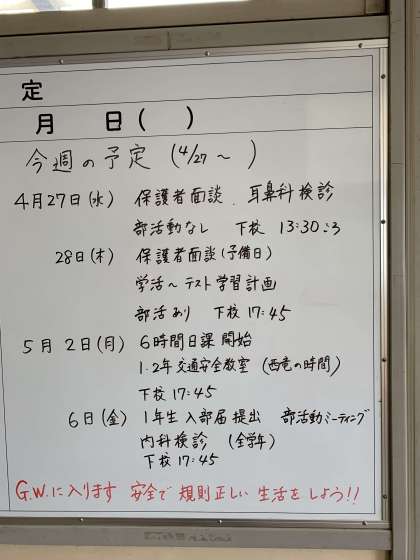 定
月 日( )
今週の予定 (4/27~ )
4月27日(水) 保護者面談、耳鼻科検診
部活動なし 下校 13:30ごろ
28日(木) 保護者面談(予備日)
学活~テスト学習計画
部活あり 下校 17:45
5月 2日(月) 6時間日課 開始
1.2年交通安全教室 (西竜の時間)
下校 17:45
6日(金) 1年生入部届提出 部活動ミーティング
内科検診 (全学年)
下校 17:45
G.W.に入ります 安全で 規則正しい 生活をしよう!!